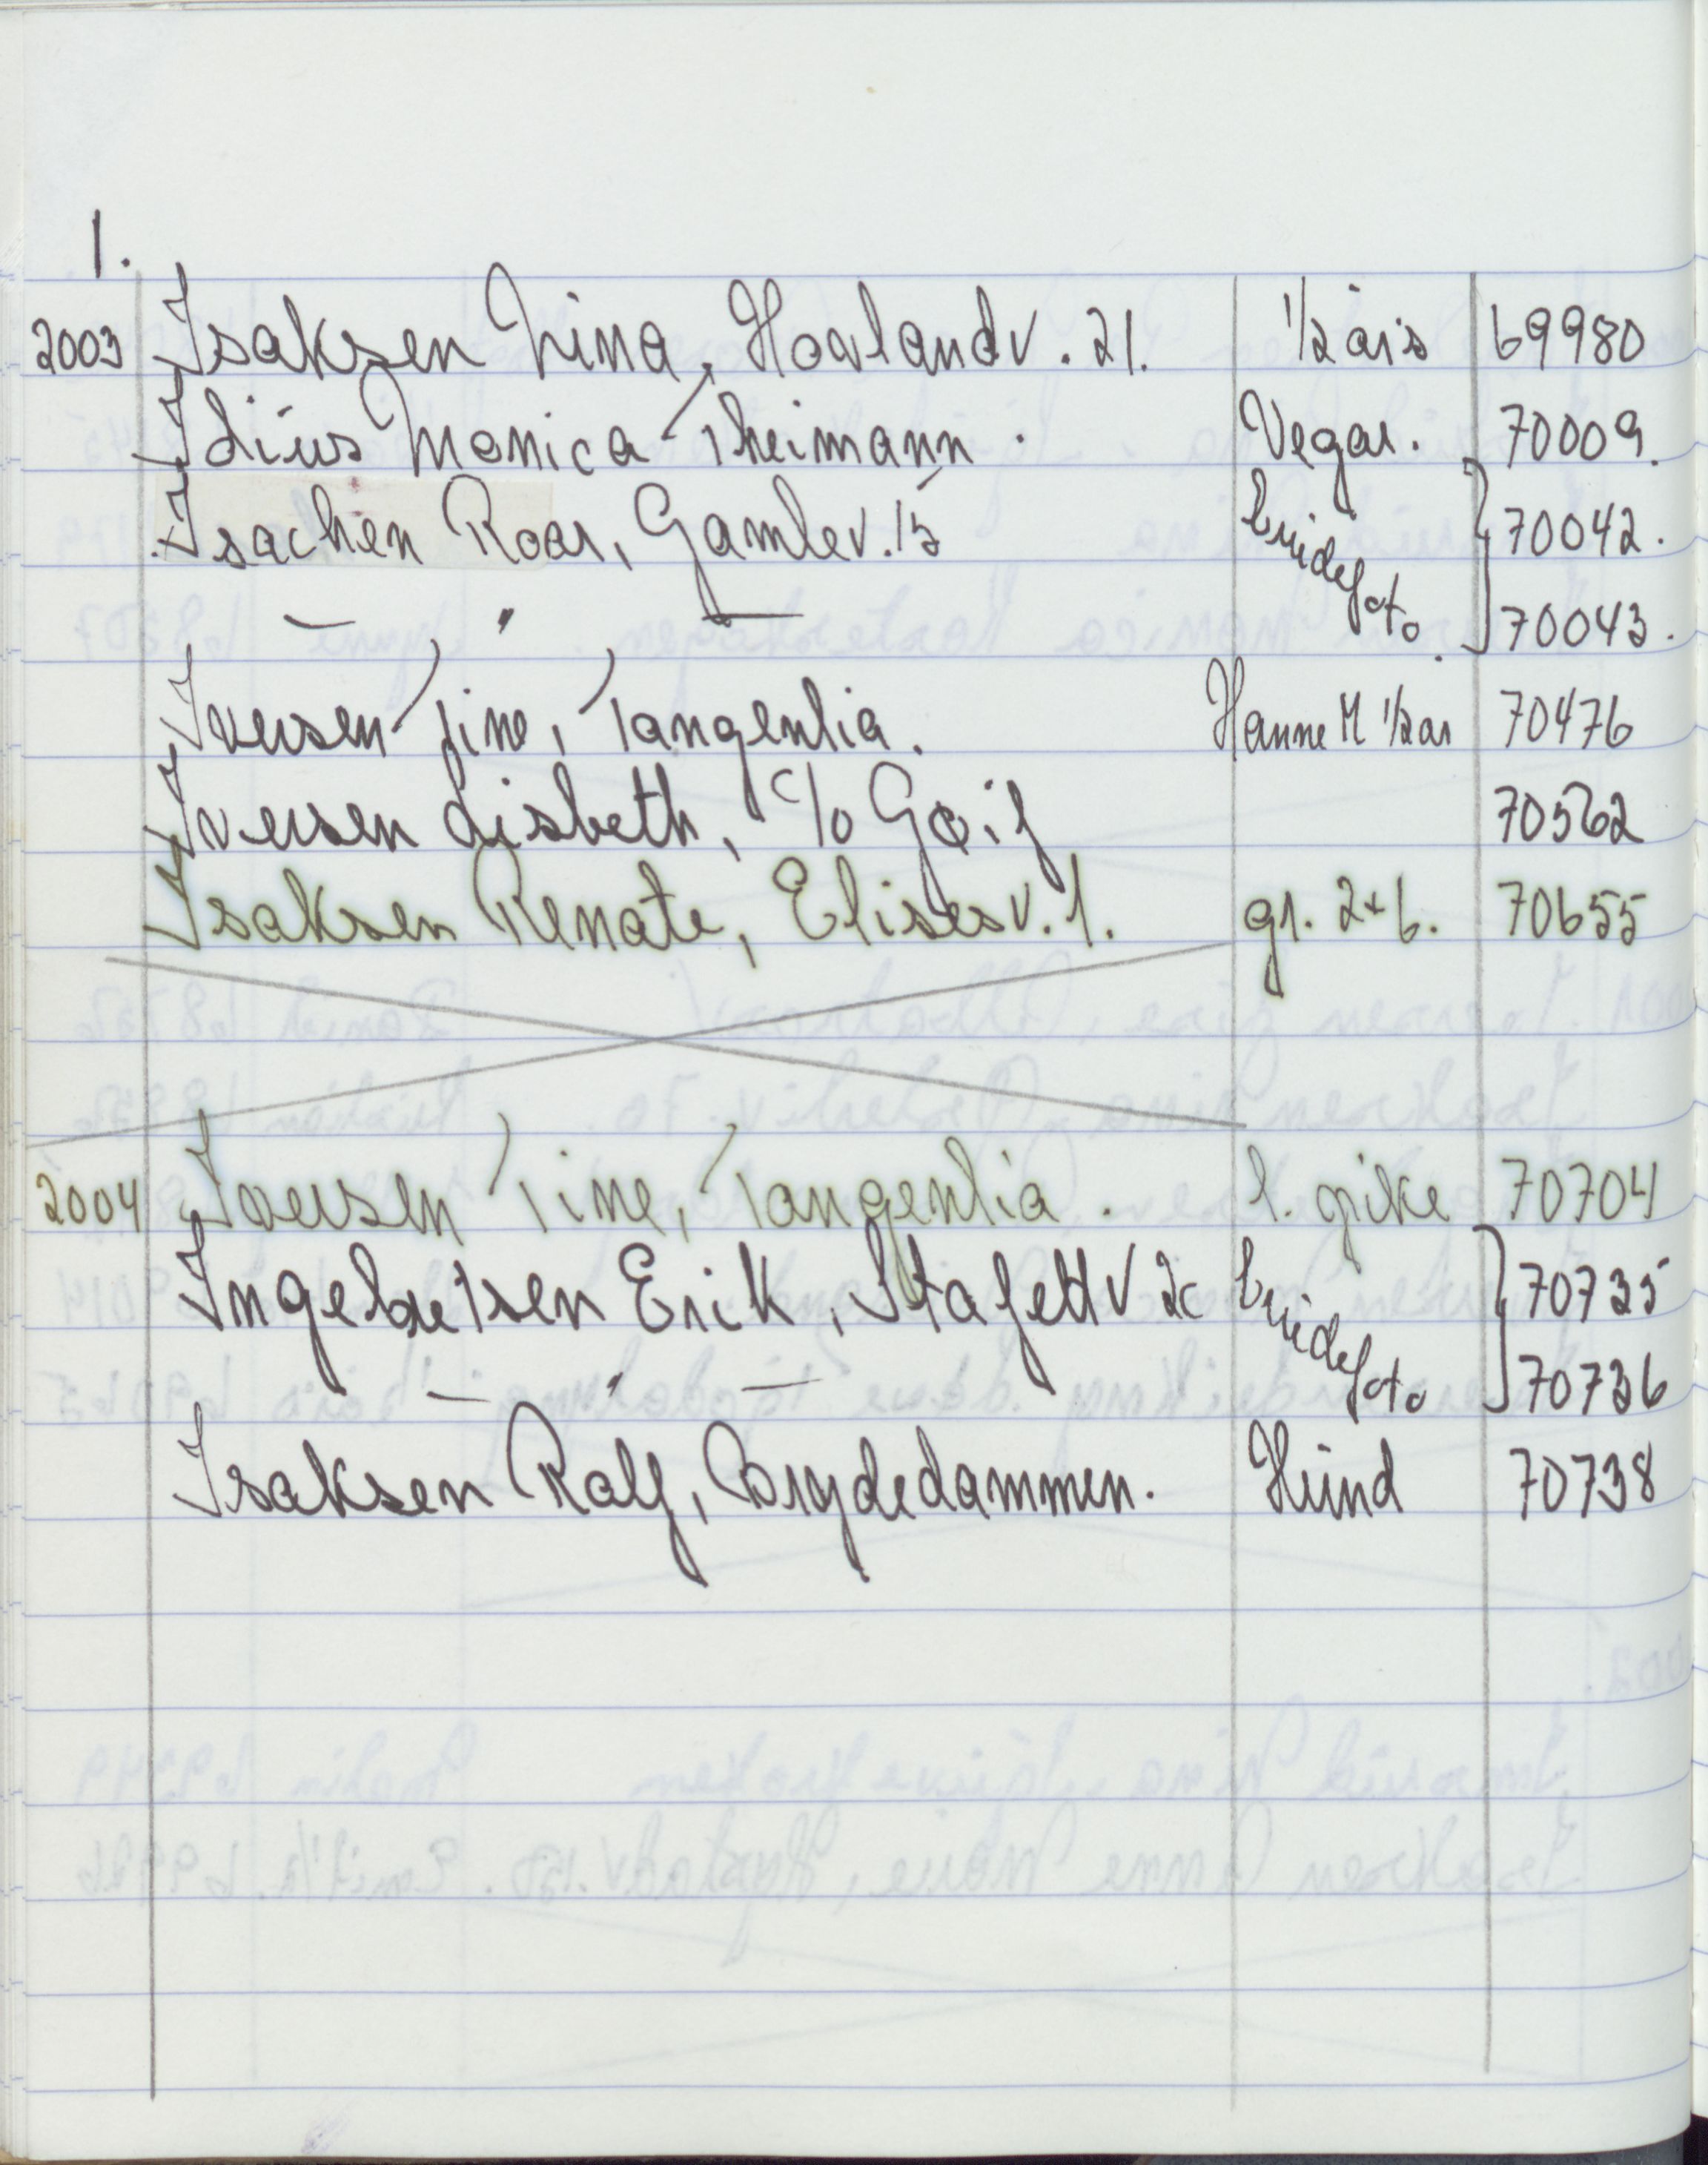 I.
2003 Isaksen Nina, Hovlandv. 21. 1/2 års 69980
Idius Monica Theimann. Vegar. 70009.
Isachen Roar, Gamlev. 15 brudefoto. 70042.
— " — 70043.
Iversen Tine, Tangenlia. Hanne M 1/2 år 70476
Iversen Lisbeth, c/o 70562
Isaksen Renate, Elisesv. 1. gr. 2+6. 70655
2004 Iversen Tine, Tangenlia. l. pike 70704
Ingebretsen Erik, Stafettv 2c brudefoto 70735
— " — 70736
Isaksen Ralf, Brydedammen. Hund 70738